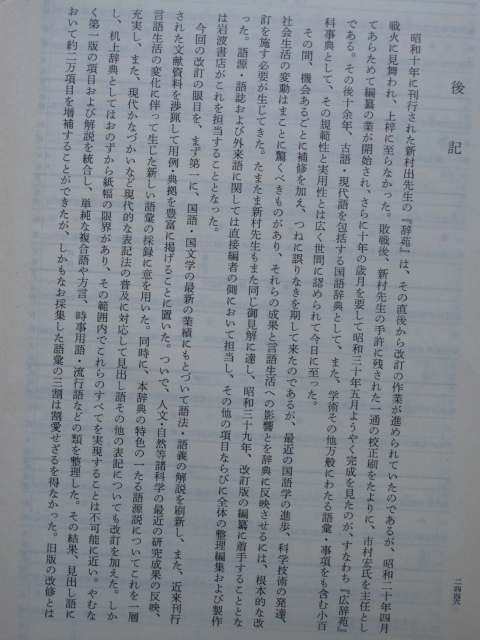 後記
昭和十年に刊行された新村出先生の『辞苑』は、その直後から改訂の作業が進められていたのであるが、昭和二十年四月
戦火に見舞われ、上梓に至らなかった。敗戦後、新村先生の手許に残された一通の校正刷をたよりに、市村宏氏を主任とし
てあらためて編纂の業が開始され、さらに十年の歳月を要して昭和三十年五月ようやく完成を見たのが、すなわち『広辞苑』
である。その後十余年、古語・現代語を包括する国語辞典として、また、学術その他万般にわたる語彙・事項をも含む小百
科事典として、その規範性と実用性とは広く世間に認められて今日に至った。
その間、機会あるごとに補修を加え、つねに誤りなきを期して来たのであるが、最近の国語学の進歩、科学技術の発達、
社会生活の変動はまことに驚くべきものがあり、それらの成果と言語生活への影響とを辞典に反映させるには、根本的な改
訂を施す必要が生じてきた。たまたま新村先生もまた同じ御見解に達し、昭和三十九年、改訂版の編纂に着手することとな
った。語源・語誌および外来語に関しては直接編者の側において担当し、その他の項目ならびに全体の整理編集および製作
は岩波書店がこれを担当することとなった。
今回の改訂の眼目を、まず第一に、国語・国文学の最新の業績にもとづいて語法・語義の解説を刷新し、また、近来刊行
された文献資料を渉猟して用例・典拠を豊富に掲げることに置いた。ついで、人文・自然等諸科学の最近の研究成果の反映、
言語生活の変化に伴って生じた新しい語彙の採録に意を用いた。同時に、本辞典の特色の一たる語源説についてこれを一層
充実し、また、現代かなづかいなど現代的な表記法の普及に対応して見出し語その他の表記についても改訂を加えた。しか
し、机上辞典としてはおのずから紙幅の限界があり、その範囲内でこれらのすべてを実現することは不可能に近い。やむな
く第一版の項目および解説を統合し、単純な複合語や方言、時事用語・流行語などの類を整理した。その結果、見出し語に
おいて約二万項目を増補することができたが、しかもなお採集した語彙の三割は割愛せざるを得なかった。旧版の改修とは
二四四六